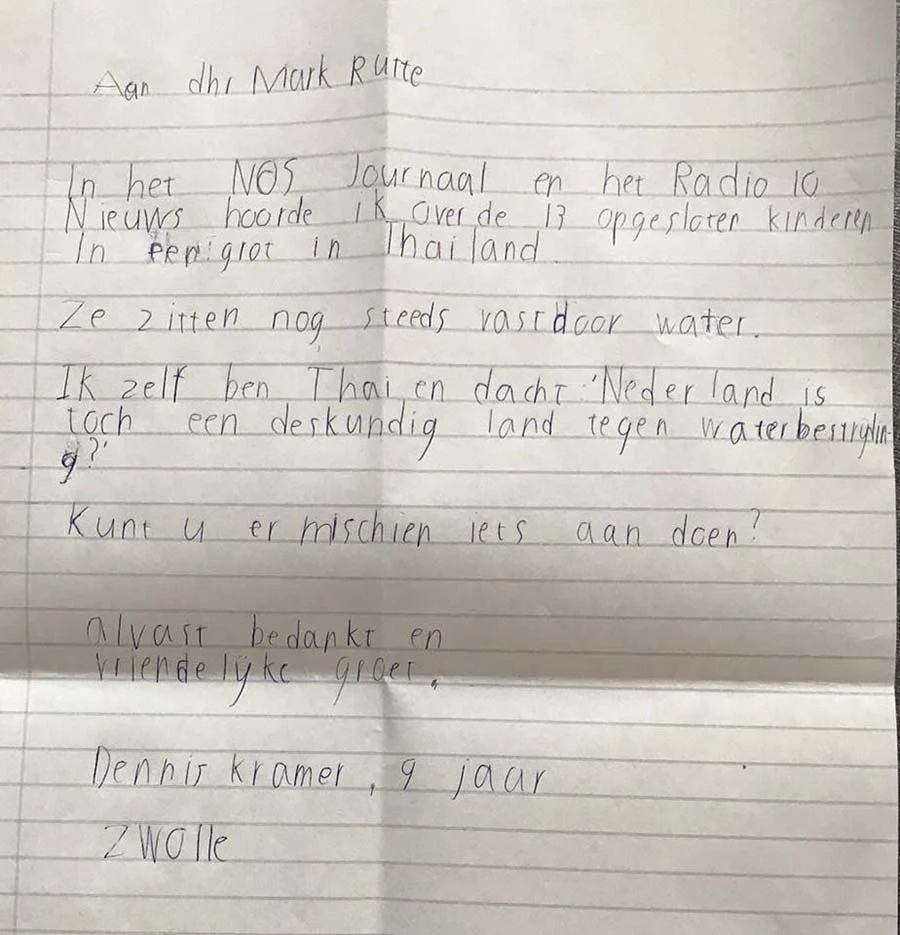 Aan dhr Mark Rutte
In het NOS Journaal en het Radio 10
Nieuws hoorde ik over de 13 opgesloten kinderen
In een grot in Thailand.
Ze zitten nog steeds vast door water.
Ik zelf ben Thai en dacht: 'Nederland is
toch een deskundig land tegen waterbestrijdin-
g?'
Kunt u er mischien iets aan doen?
alvast bedankt en
vriendelijke groet,
Dennis kramer, 9 jaar
Zwolle